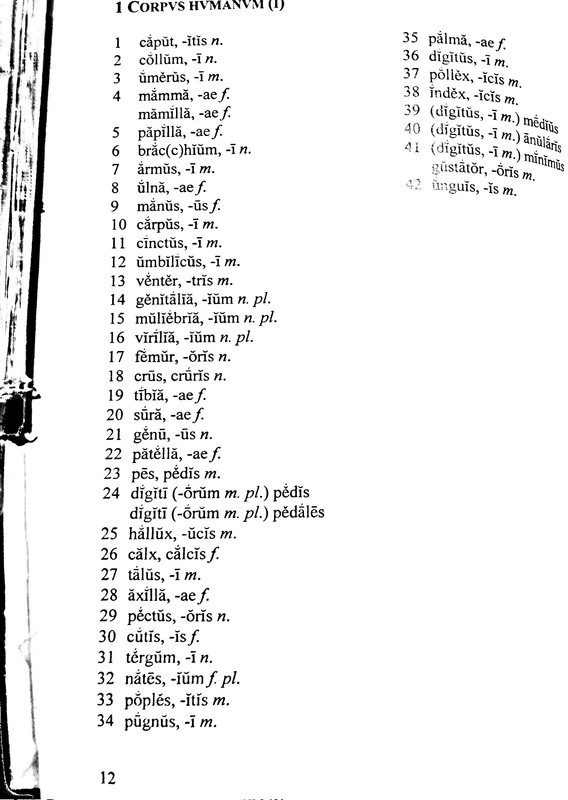 1 CORPVS HVMANVM (I)
1 cắpŭt, -ĭtĭs n.
2 cṓllŭm, -ī n.
3 ŭ́mĕrŭs, -ī m.
4 mắmmă, -ae f.
mămĭ́llă, -ae f.
5 păpĭ́llă, -ae f.
6 brắc(c)hĭŭm, -ī n.
7 ắrmŭs, -ī m.
8 ŭ́lnă, -ae f.
9 mắnŭs, -ūs f.
10 cắrpŭs, -ī m.
11 cī́nctŭs, -ī m.
12 ŭmbĭlī́cŭs, -ī m.
13 vĕ́ntĕr, -trĭs m.
14 gĕnĭtā́lĭă, -ĭŭm n. pl.
15 mŭlĭĕ́brĭă, -ĭŭm n. pl.
16 vĭrī́lĭă, -ĭŭm n. pl.
17 fĕ́mŭr, -ŏrĭs n.
18 crūs, crū́rĭs n.
19 tī́bĭă, -ae f.
20 sū́ră, -ae f.
21 gĕ́nū, -ūs n.
22 pătĕ́llă, -ae f.
23 pēs, pĕ́dĭs m.
24 dĭ́gĭtī (-ṓrŭm m. pl.) pĕ́dĭs
dĭ́gĭtī (-ṓrŭm m. pl.) pĕdā́lēs
25 hắllŭx, -ŭcĭs m.
26 călx, cắlcĭs f.
27 tā́lŭs, -ī m.
28 ăxĭ́llă, -ae f.
29 pĕ́ctŭs, -ŏrĭs n.
30 cŭ́tĭs, -ĭs f.
31 tĕ́rgŭm, -ī n.
32 nắtēs, -ĭŭm f. pl.
33 pŏ́plĕs, -ĭtĭs m.
34 pŭ́gnŭs, -ī m.
35 pắlmă, -ae f.
36 dĭ́gĭtŭs, -ī m.
37 pŏ́llĕx, -ĭcĭs m.
38 ĭ́ndĕx, -ĭcĭs m.
39 (dĭ́gĭtŭs, -ī m.) mĕ́dĭŭs
40 (dĭ́gĭtŭs, -ī m.) ānŭlā́rĭs
41 (dĭ́gĭtŭs, -ī m.) mĭ́nĭmŭs
gŭstā́tŏr, -ṓrĭs m.
42 ŭ́nguĭs, -ĭs m.
12